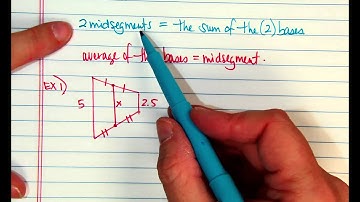 2 midsegments = the sum of the (2) bases
average of the bases = midsegment.
EX 1)
5 x 2.5